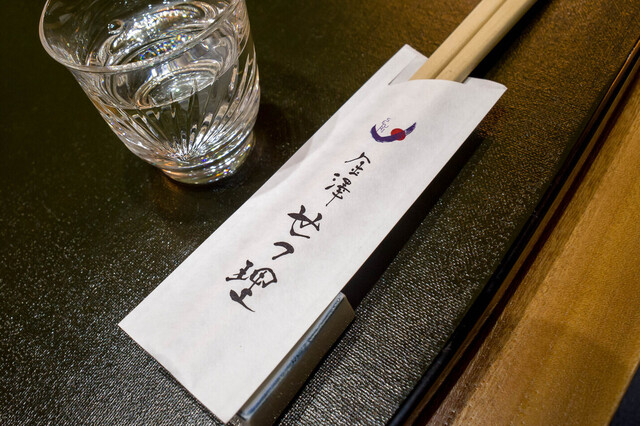 金澤 せつ理